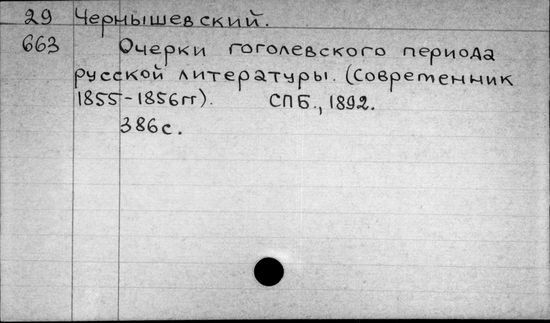 29 Чернышевский.
663 Очерки гоголевского периода
русской литературы. (Современник
1855-1856гг). СПБ., 1892.
386с.